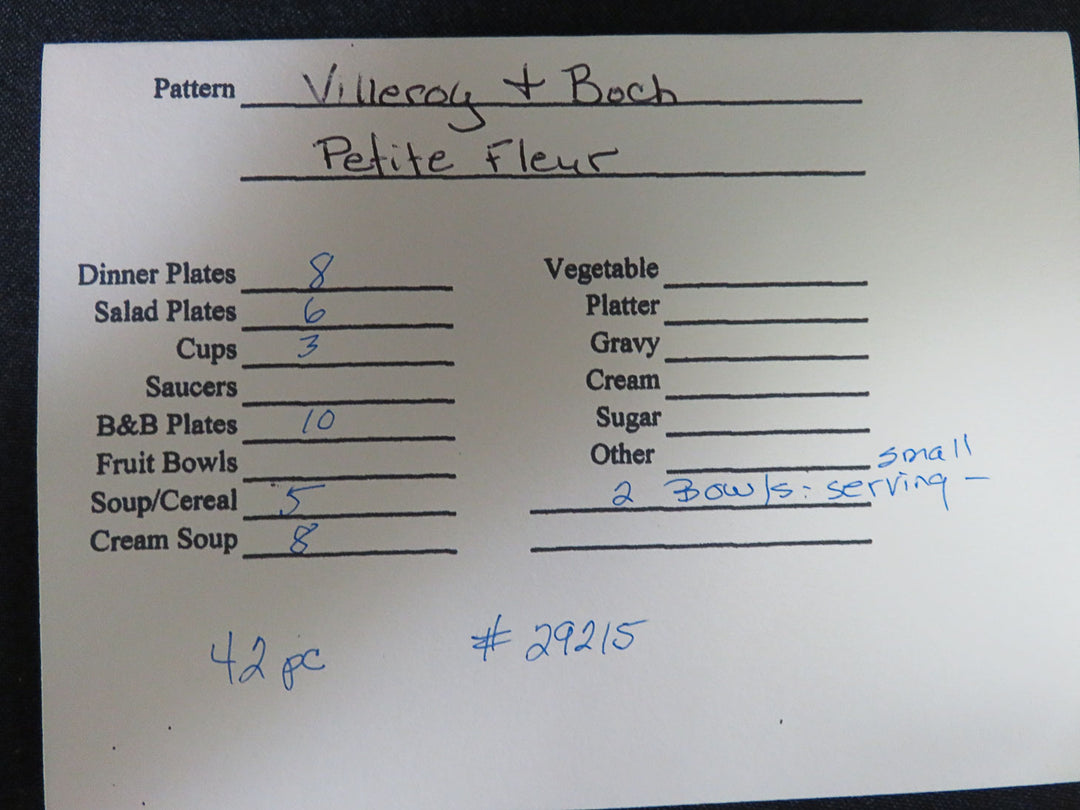 Pattern Villeroy + Boch
Petite Fleur
Dinner Plates 8
Salad Plates 6
Cups 3
Saucers
B&B Plates 10
Fruit Bowls
Soup/Cereal 5
Cream Soup 8
Vegetable
Platter
Gravy
Cream
Sugar
Other small
2 Bowls: serving -
42 pc # 29215